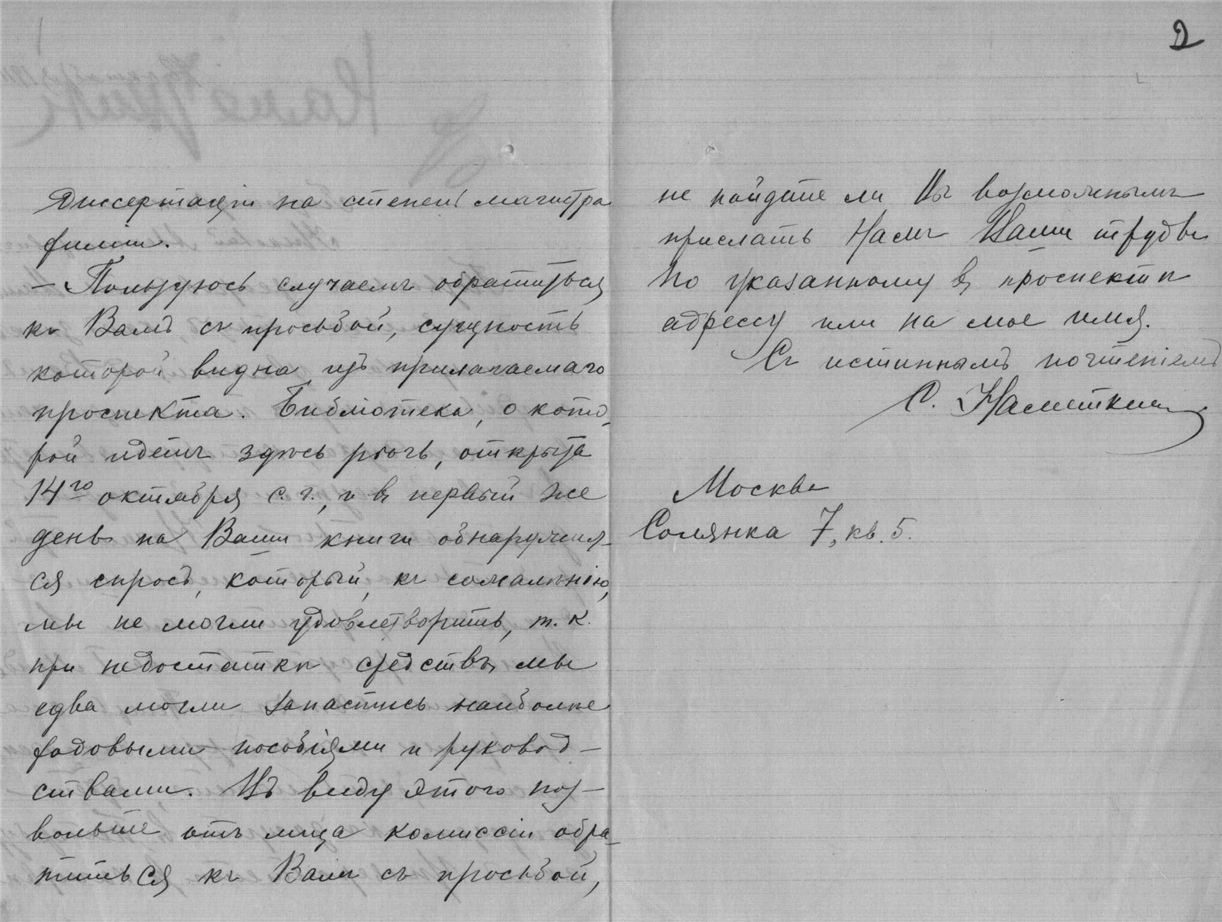 диссертацiи на степень магистра
химiи.
— Пользуюсь случаемъ обратиться
къ Вамъ съ просьбой, сущность
которой видна изъ прилагаемаго
проспекта. Библiотека, о кото-
рой идетъ здѣсь рѣчь, открыта
14го октября с. г., и въ первый же
день на Ваши книги обнаружил-
ся спросъ, который, къ сожалѣнiю,
мы не могли удовлетворить, т. к.
при недостаткѣ средствъ мы
едва могли запастись наиболѣе
ходовыми пособiями и руковод-
ствами. Въ виду этого поз-
вольте отъ лица комиссiи обра-
титься къ Вамъ съ просьбой,
2
не найдете ли Вы возможнымъ
прислать Намъ Ваши труды
по указанному въ проспектѣ
адрессу или на мое имя.
Съ истиннымъ почтенiемъ
С. Наметкинъ
Москва
Солянка 7, кв. 5.